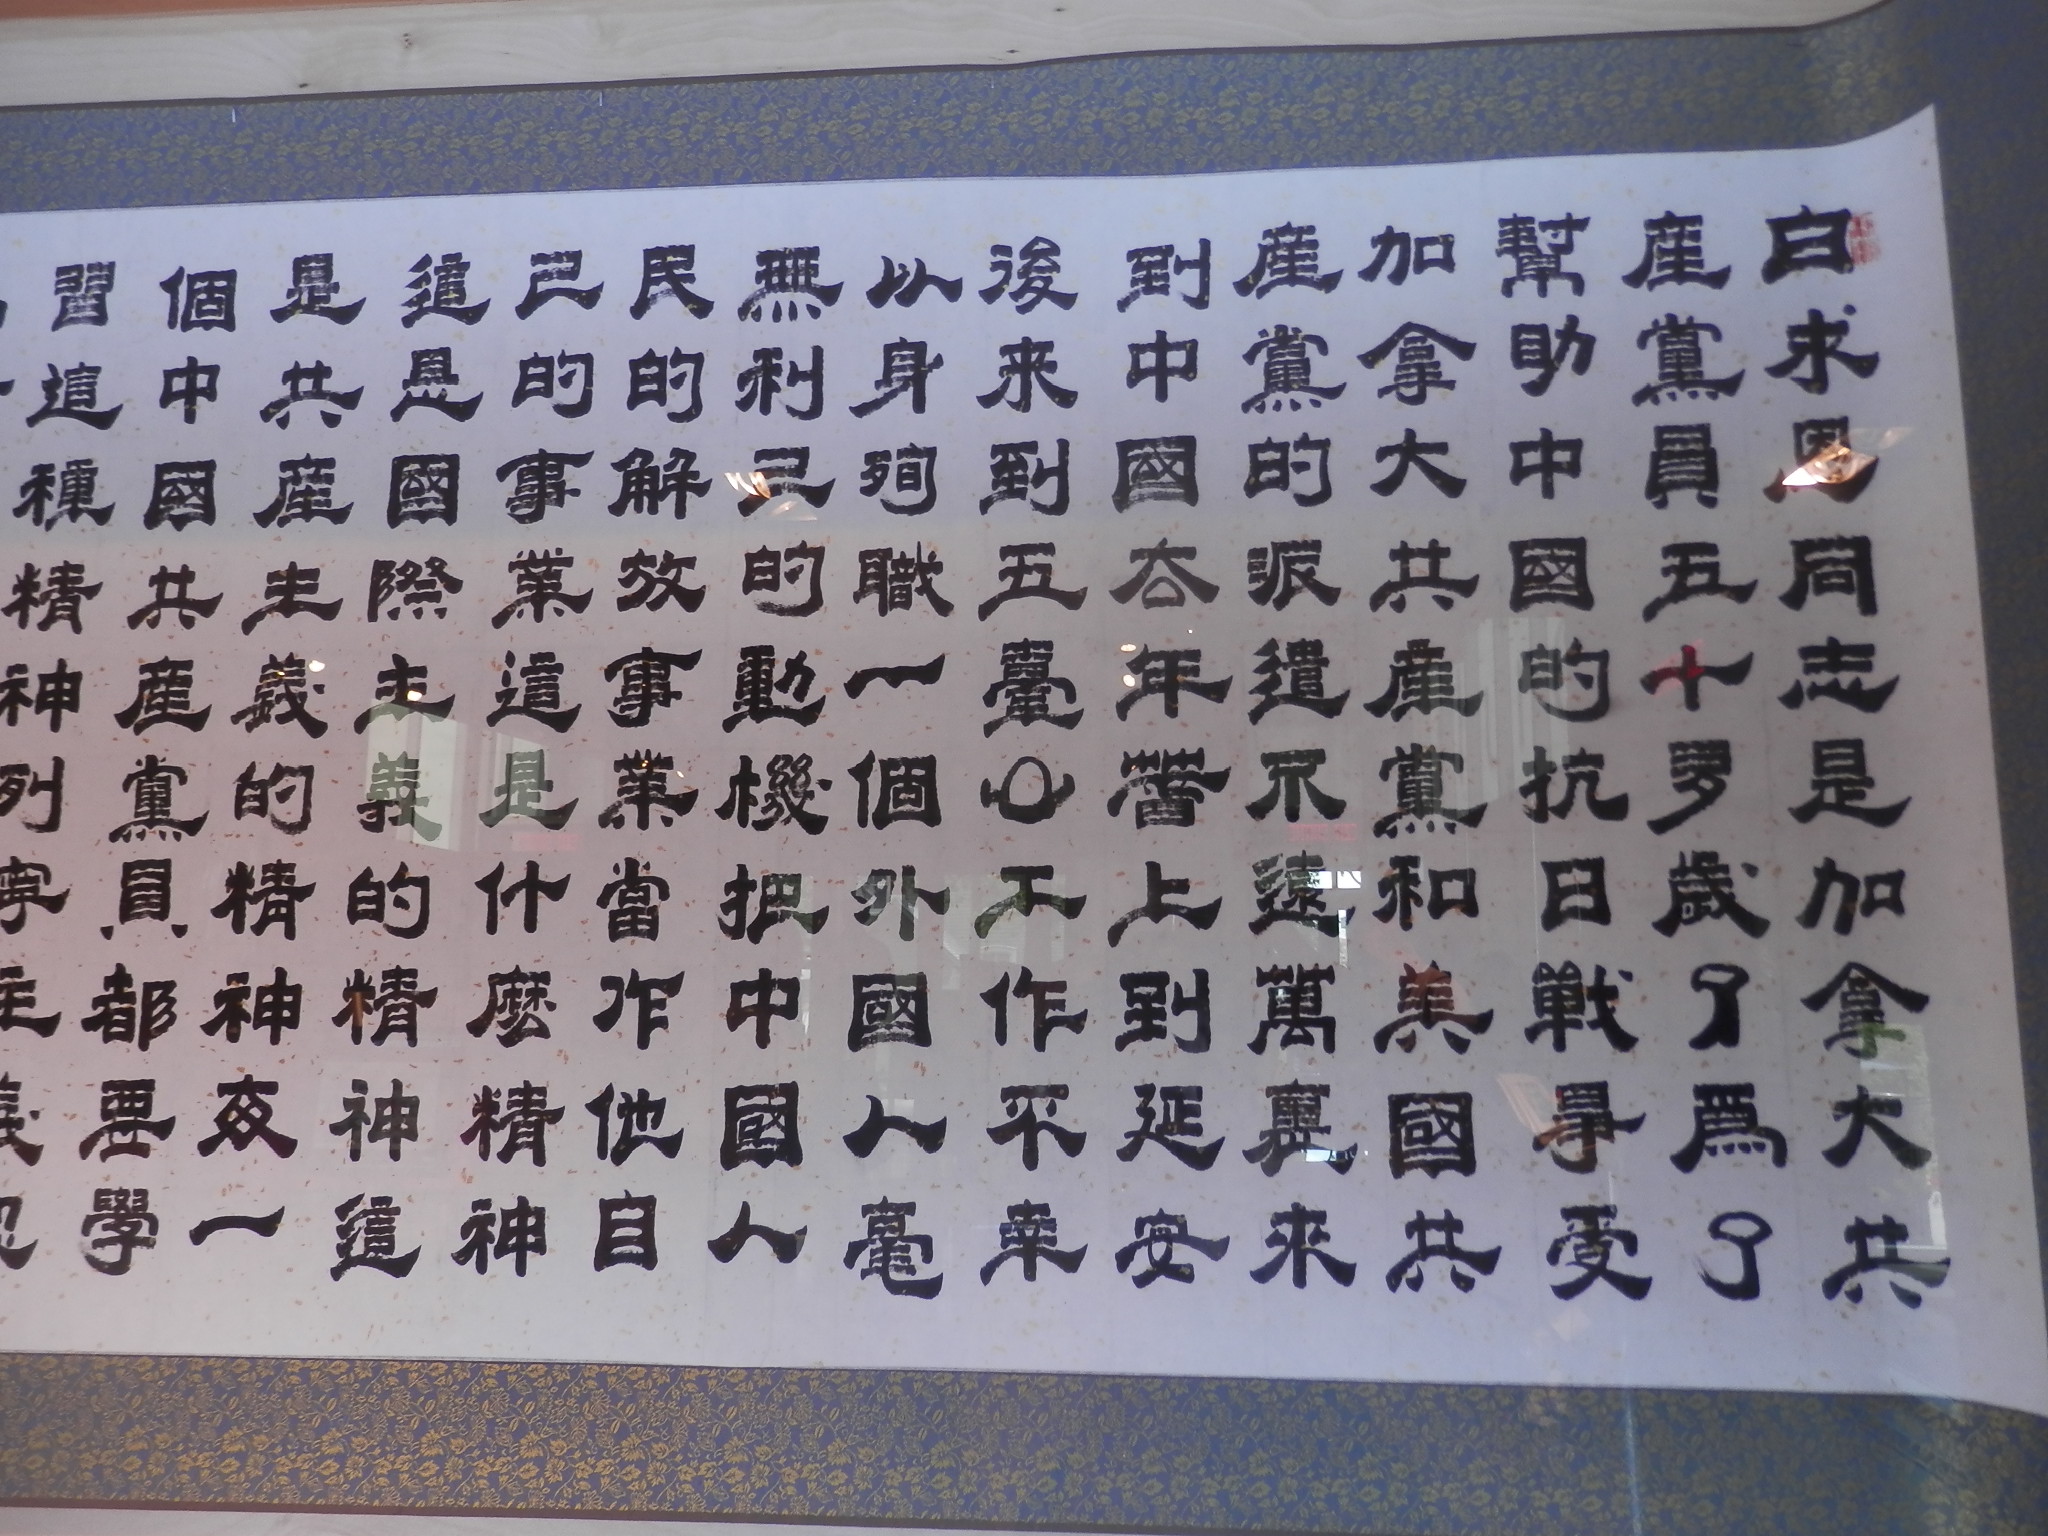 白求恩同志是加拿大共
産黨員五十多歲了爲了
幫助中國的抗日戰爭受
加拿大共産黨和美國共
産黨的派遣不遠萬裏來
到中國去年春上到延安
後来到五臺山工作不幸
以身殉職一個外國人毫
無利己的動機把中國人
民的解放事業當作他自
己的事業這是什麽精神
這是國際主義的精神這
是共産主義的精神每一
個中國共産黨員都要學
習這種精神列寧主義認